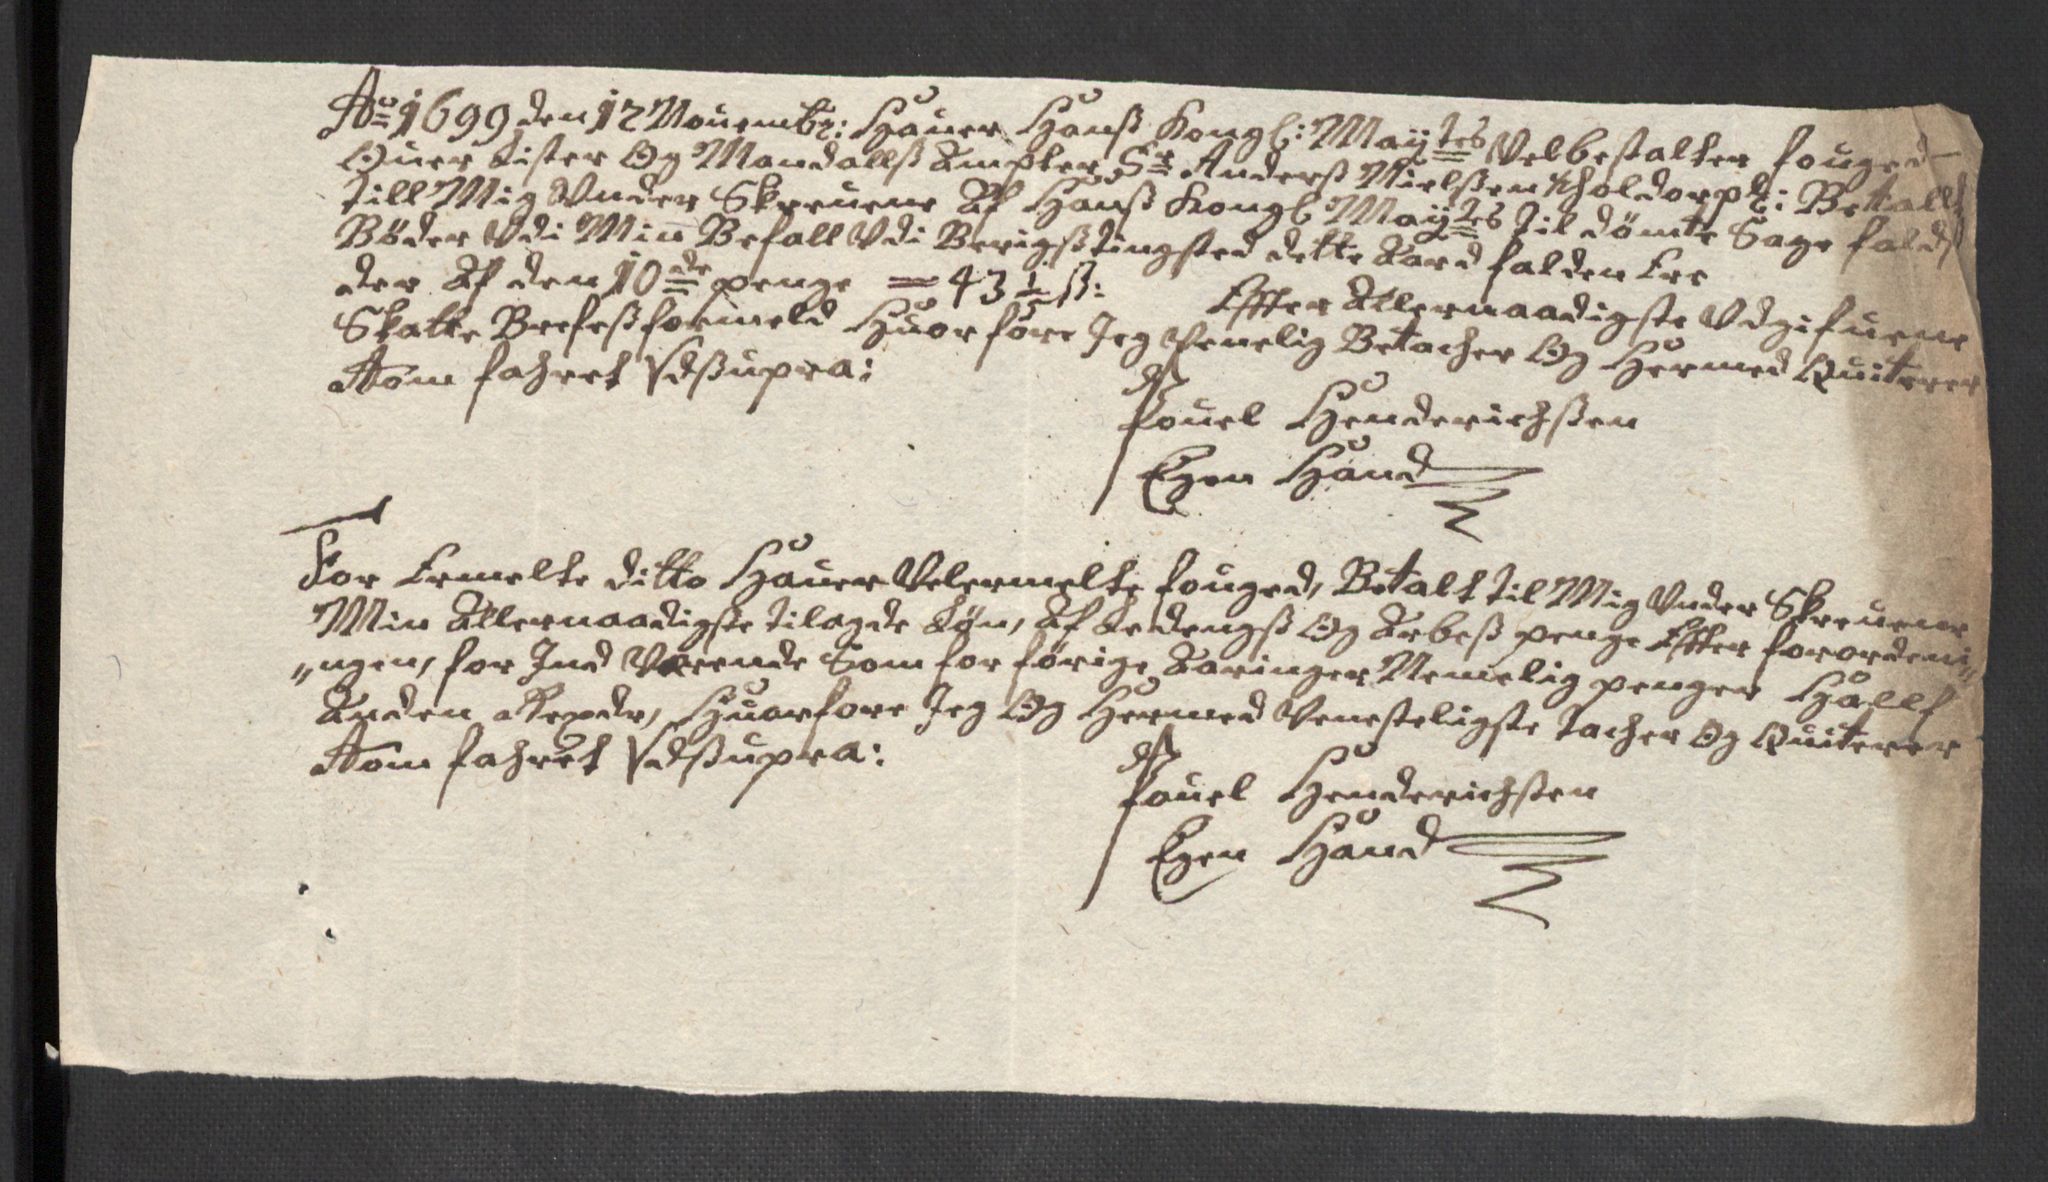 Ao 1699 den 12 Nouembr: Hauer Hanß Kongl: Mayts Velbestalter fouged
Ouer Lister Og Mandallß Ampter Sr Anderß Nielßen Tholdorph: Betallt
till Mig Vnder Skreuene Af Hanß Kongl: Mayts til dömte Sage falds
Böder Vdi Min Befall Vdi Berigß tingsted dette Aard falden Ere
der Af den 10de penge = 43 ½ ß: Effter Allernaadigste Vdgifuene
Skatte Brefeß formeld Huor före Jeg Venelig Betacher Og Hermed Quiterer
Aom fahret Vdßupra:
Pouel Henderichßen
Egen Hand
For Ermelte ditto Hauer Velermelte fouged, Betalt til Mig Vnder Skreuene
Min Allernaadigste tilagde Lön, Af Ledengß Og Arbeß penge Effter forordeni„
„ngen, for Ind Verende Som for förige Aaringer Nemelig penger Hallf
Anden Repdr, Huorfore Jeg Og Hermed Veneskeligste tacher Og Quiterer
Aom fahret Vdßupra:
Pouel Henderichßen
Egen Hand